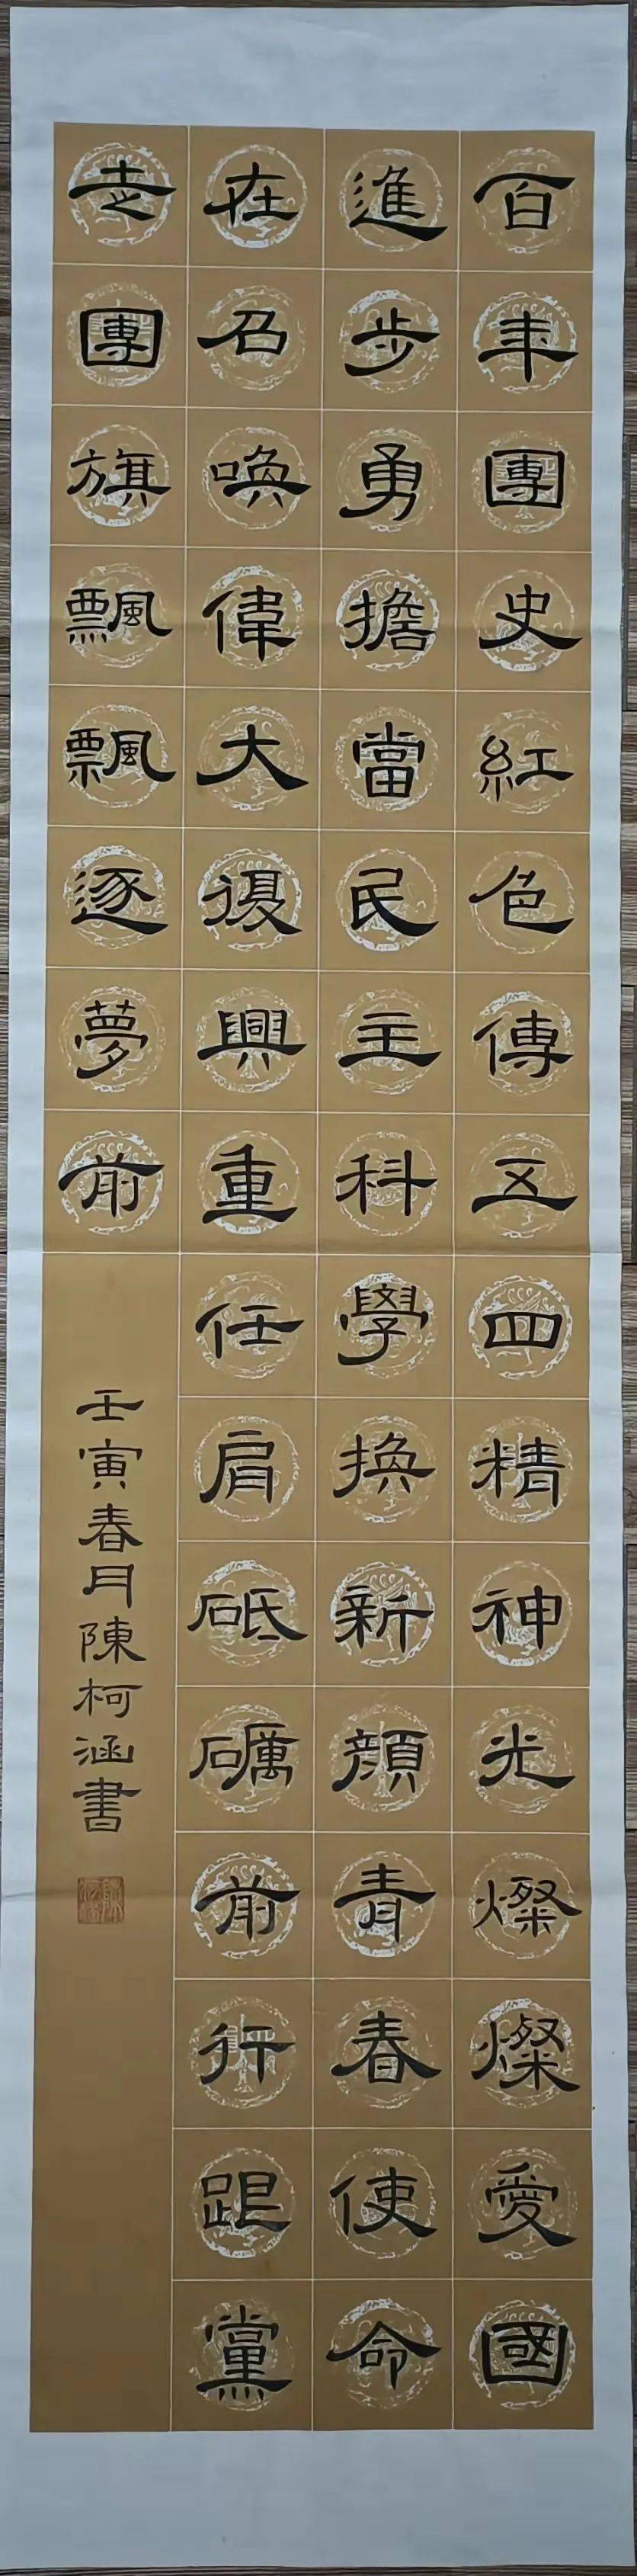 百年團史紅色傳五四精神光燦燦愛國
進步勇擔當民主科學換新顏青春使命
在召喚偉大復興重任肩砥礪前行跟黨
走團旗飄飄逐夢前
壬寅春月陳柯涵書